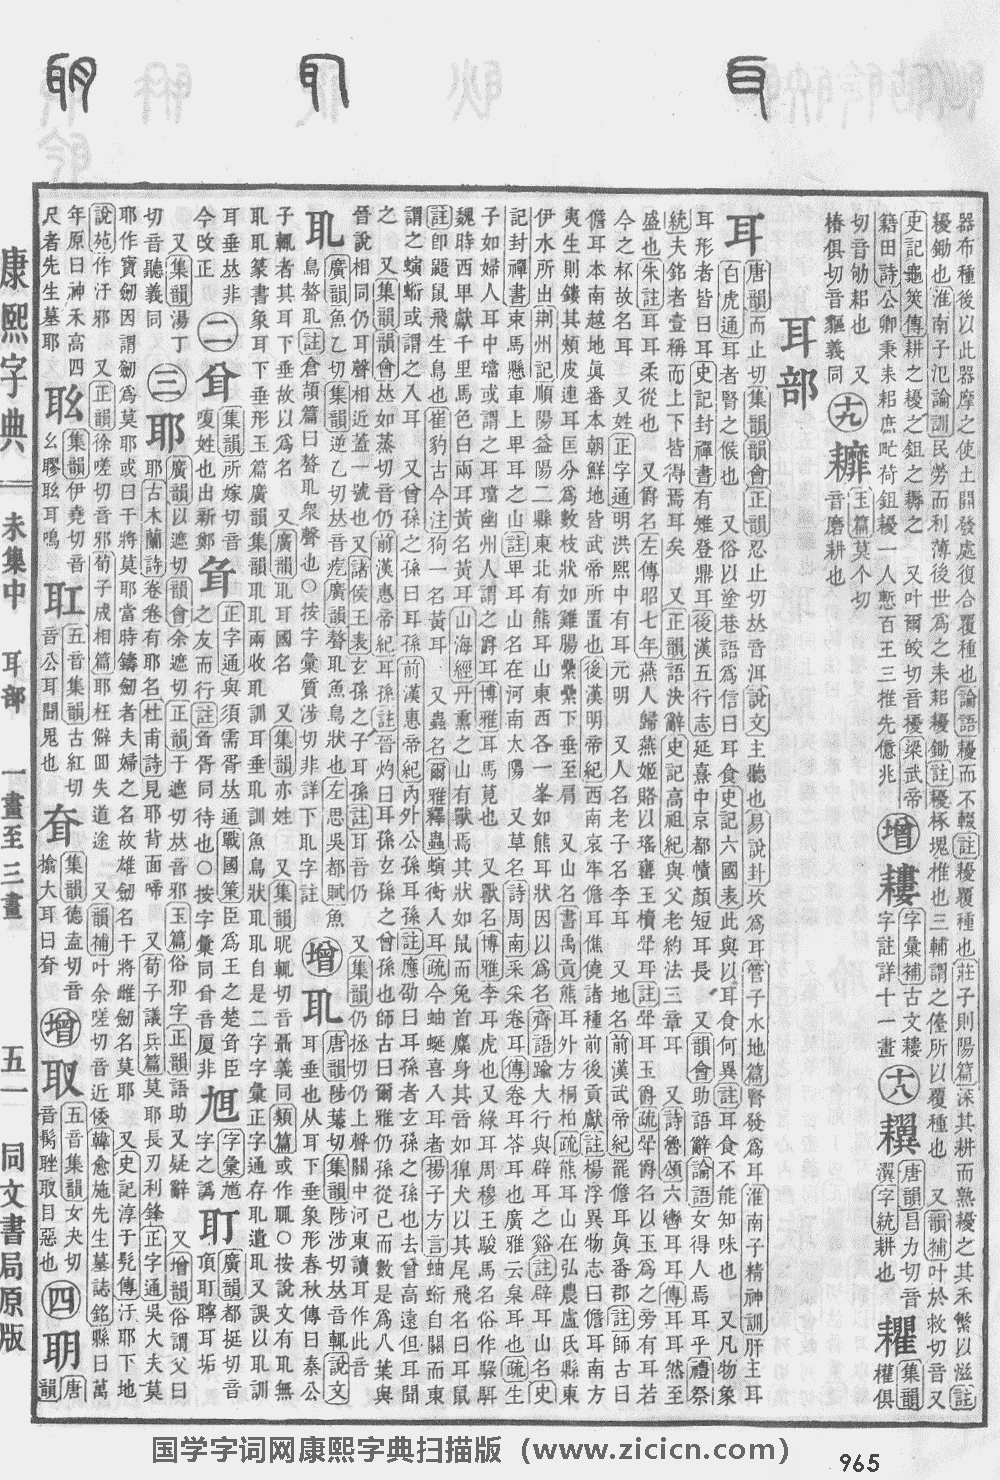 器布種後以此器摩之使土開發處復合覆種也論語耰而不輟註耰覆種也莊子則陽篇深其耕而熟耰之其禾繁以滋註
耰鋤也淮南子氾論訓民勞而利薄後世爲之耒耜耰鋤註耰椓塊椎也三輔謂之儓所以覆種也 又韻補叶於救切音又
史記龜筴傳耕之耰之鉏之耨之 又叶爾皎切音擾梁武帝
籍田詩公卿秉耒耜庶甿荷鉏耰一人慙百王三推先億兆
切音勒耜也 又
椿俱切音貙義同
增
耬
字彙補古文耬
字註詳十一畫
十八
唐韻昌力切音
字統耕也
集韻
權俱
十九
耱
玉篇莫个切
音磨耕也
耳部
耳
唐韻而止切集韻韻會正韻忍止切𠀤音洱說文主聽也易說卦坎爲耳管子水地篇腎發爲耳淮南子精神訓肝主耳
白虎通耳者腎之候也 又俗以塗巷語爲信曰耳食史記六國表此與以耳食何異註耳食不能知味也 又凡物象
耳形者皆曰耳史記封禪書有雉登鼎耳後漢五行志延熹中京都幘顏短耳長 又韻會助語辭論語女得人焉耳乎禮祭
統夫銘者壹稱而上下皆得焉耳矣 又正韻語決辭史記高祖紀與父老約法三章耳 又詩魯頌六轡耳耳傳耳耳然至
盛也朱註耳耳柔從也 又爵名左傳昭七年燕人歸燕姬賂以瑤罋玉櫝斝耳註斝耳玉爵疏斝爵名以玉爲之旁有耳若
今之杯故名耳 又姓正字通明洪熙中有耳元明 又人名老子名李耳 又地名前漢武帝紀罷儋耳眞番郡註師古曰
儋耳本南越地眞番本朝鮮地皆武帝所置也後漢明帝紀西南哀牢儋耳僬僥諸種前後貢獻註楊浮異物志曰儋耳南方
夷生則鏤其頰皮連耳匡分爲數枝狀如雞腸纍纍下垂至肩 又山名書禹貢熊耳外方桐柏疏熊耳山在弘農盧氏縣東
伊水所出荆州記順陽益陽二縣東北有熊耳山東西各一峯如熊耳狀因以爲名齊語踰大行與辟耳之谿註辟耳山名史
記封禪書束馬懸車上卑耳之山註卑耳山名在河南太陽 又草名詩周南采采卷耳傳卷耳苓耳也廣雅云枲耳也疏生
子如婦人耳中璫或謂之耳璫幽州人謂之爵耳博雅耳馬莧也 又獸名博雅李耳虎也又綠耳周穆王駿馬名俗作騄駬
魏時西卑獻千里馬色白兩耳黃名黃耳山海經丹熏之山有獸焉其狀如鼠而兔首麋身其音如獆犬以其尾飛名曰耳鼠
註卽鼯鼠飛生鳥也崔豹古今注狗一名黃耳 又蟲名爾雅釋蟲螾衝入耳疏今蚰蜒喜入耳者揚子方言蚰蜒自關而東
謂之螾蜒或謂之入耳 又曾孫之孫曰耳孫前漢惠帝紀內外公孫耳孫註應劭曰耳孫者玄孫之子也去曾高遠但耳聞
之 又集韻韻會𠀤如蒸切音仍前漢惠帝紀耳孫註晉灼曰耳孫玄孫之曾孫也師古曰爾雅仍孫從己而數是爲八葉與
晉說相同仍耳聲相近蓋一號也又諸侯王表玄孫之子耳孫註耳音仍 又集韻仍拯切仍上聲關中河東讀耳作此音
耴
廣韻魚乙切集韻逆乙切𠀤音疙廣韻聲耴魚鳥狀也左思吳都賦魚
鳥聱耴註倉頡篇曰聱耴衆聲也○按字彙質涉切非詳下耴字註
增
耴
唐韻陟葉切集韻陟涉切𠀤音輒說文
耳垂也从耳下垂象形春秋傳曰秦公
子輒者其耳下垂故以爲名 又廣韻耴耳國名 又集韻亦姓 又集韻昵輒切音聶義同類篇或作𦔳○按說文有耴無
耴耴篆書象耳下垂形玉篇廣韻集韻耴耴兩收耴訓耳垂耴訓魚鳥狀耴耴自是二字字彙正字通存耴遺耴又誤以耴訓
耳垂𠀤非
今改正
二
㕅
集韻所嫁切音
嗄姓也出新鄭
正字通與須需胥𠀤通戰國策臣爲王之楚耷臣
之友而行註耷胥同待也○按字彙同㕅音厦非
字彙尯
字之譌
耵
廣韻都挺切音
頂耵聹耳垢
又集韻湯丁
切音聽義同
三
耶
廣韻以遮切韻會余遮切正韻于遮切𠀤音邪玉篇俗邪字正韻語助又疑辭 又增韻俗謂父曰
耶古木蘭詩卷卷有耶名杜甫詩見耶背面啼 又荀子議兵篇莫耶長刃利鋒正字通吳大夫莫
耶作寶劒因謂劒爲莫耶或曰干將莫耶當時鑄劒者夫婦之名故雄劒名干將雌劒名莫耶 又史記淳于髠傳汙耶下地
說苑作汙邪 又正韻徐嗟切音邪荀子成相篇耶枉僻回失道途 又韻補叶余嗟切音近倭韓愈施先生墓誌銘縣曰萬
年原曰神禾高四
尺者先生墓耶
集韻伊堯切音
幺䁱耾耳鳴
耵
五音集韻古紅切
音公耳聞鬼也
耷
集韻德盍切音
㩉大耳曰耷
增
取
五音集韻女夬切
音髯聉取目惡也
四
明
唐
韻
康熙字典 未集中 耳部 一畫至三畫 五一 同文書局原版
国学字词网康熙字典扫描版（www.zicicn.com）
965